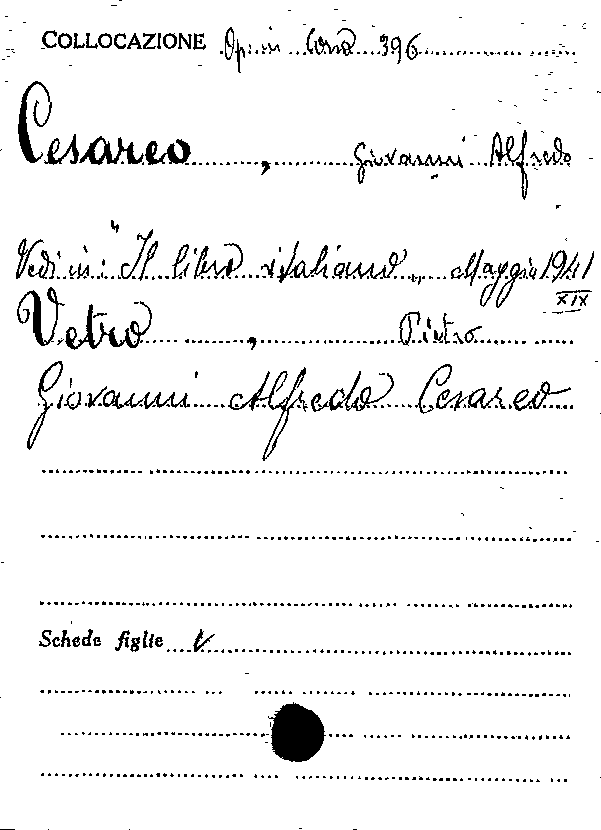 COLLOCAZIONE 396
Cesareo, Giovanni Alfredo
Vedi in: "Il libro italiano„ Maggio 1941
XIX
Vetro, Pietro
Giovanni Alfredo Cesareo
Schede figlie